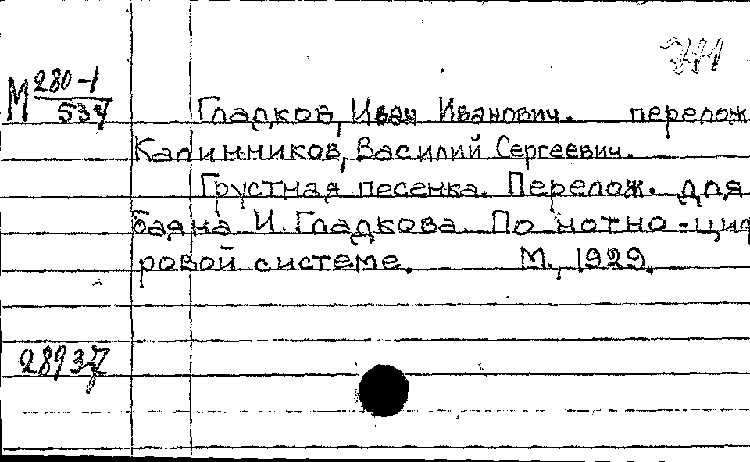 М 280-1
537
Гладков, Иван Иванович. перелож
Калинников, Василий Сергеевич.
Грустная песенка. Перелож. для
баяна И. Гладкова. По нотно-циф
ровой системе. М., 1929.
28937